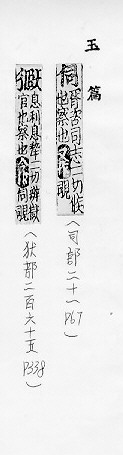 玉篇
伺 胥吏司志二切候也察也今作覗
（司部二十一 P67）
㹜 息利息茲二切辨獄官也察也今作伺覗
（㹜部二百六十五 P338）